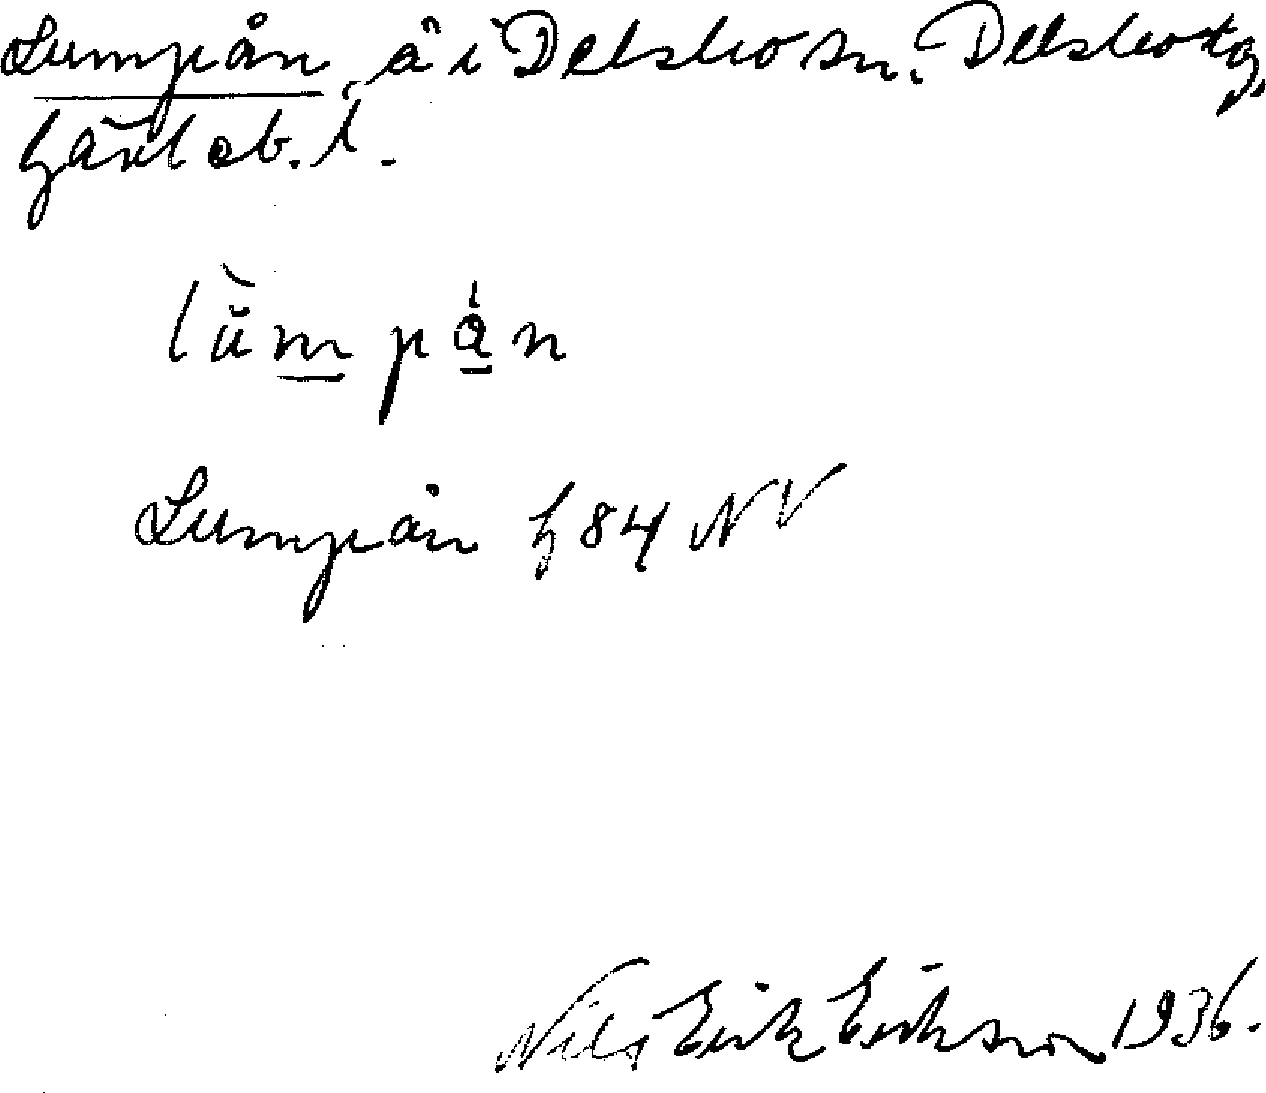 Lumpån, å i Delsbo sn. Delsbo tg,
Gävleb. l.
lŭmpån
Lumpån h 84 NV
Nils Erik Erikson 1936.